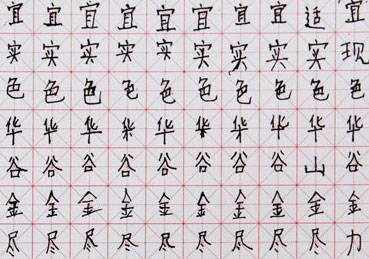 宜宜宜宜宜宜宜宜适宜
实实实实实实实实实现
色色色色色色色色色色
华华华华华华华华华华
谷谷谷谷谷谷谷谷山谷
金金金金金金金金金金
尽尽尽尽尽尽尽尽尽力